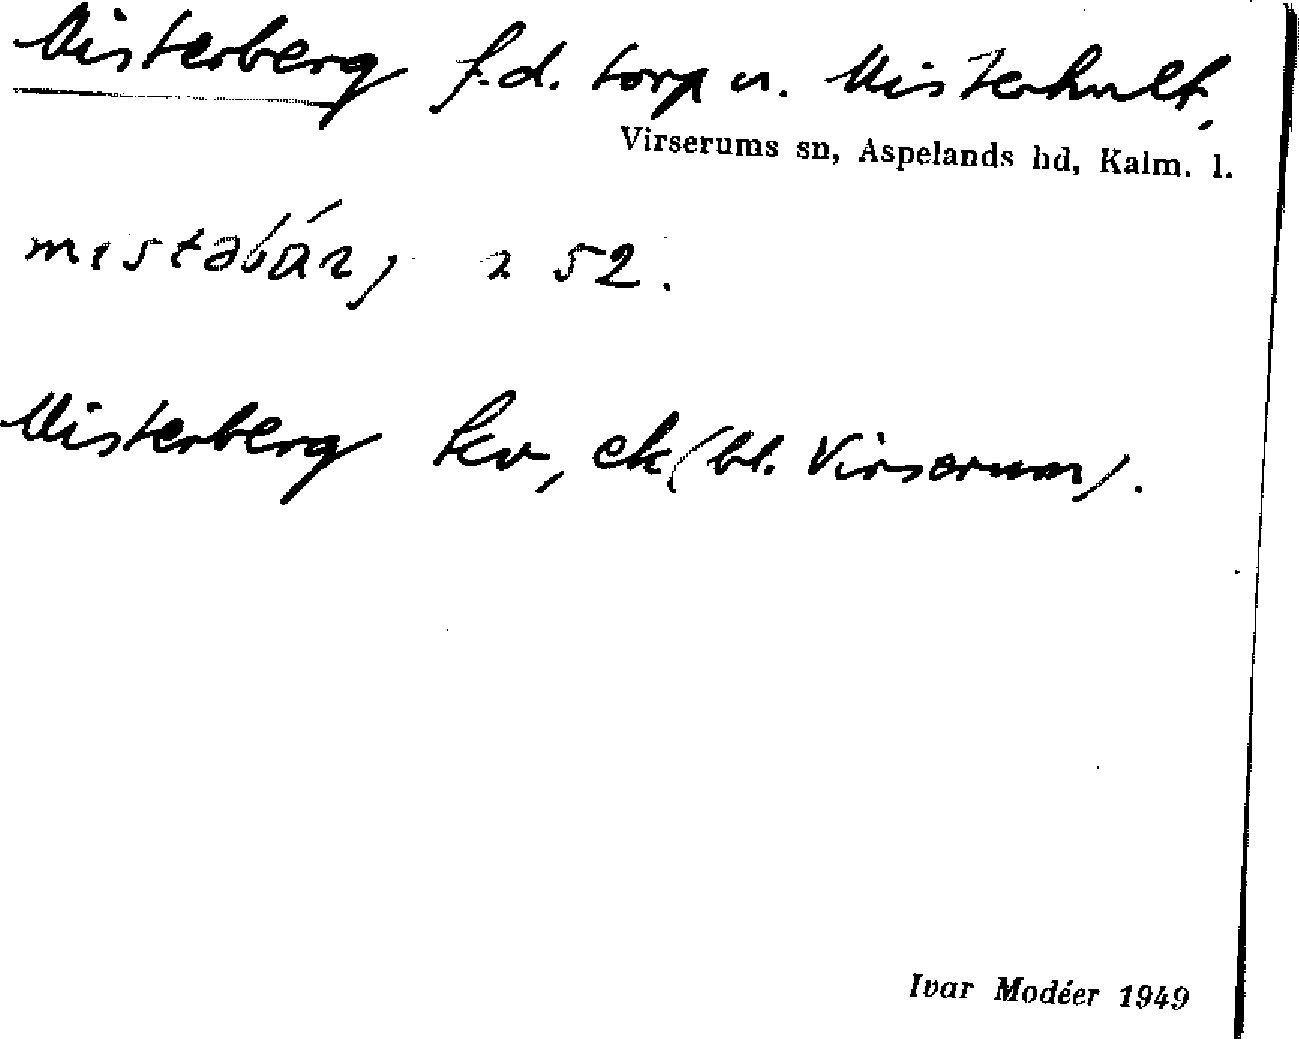 Misterberg f.d. torp u. Misterhult,
Virserums sn, Aspelands hd, Kalm. l.
52.
Misterberg kv, ek (bl. Virserum).
Ivar Modéer 1949